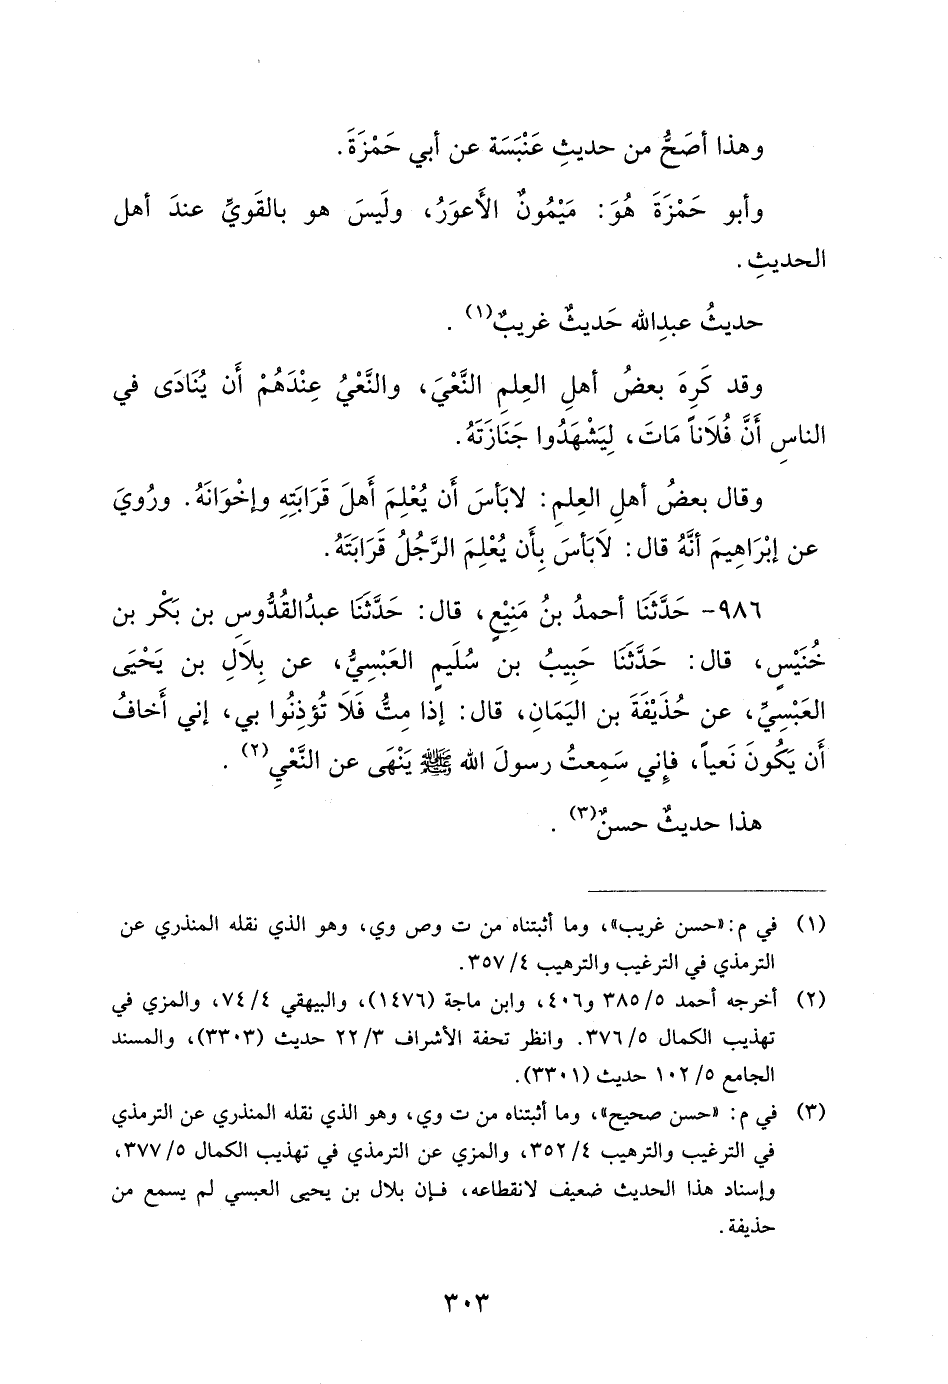 وهذا أصَحُّ من حديثِ عَنْبَسَة عن أبي حَمْزَةَ.
وأبو حَمْزَةَ هُوَ: مَيْمُونٌ الأَعوَرُ، ولَيسَ هو بالقَويِّ عندَ أهل
الحديثِ.
حديثُ عبدِالله حَديثٌ غريبٌ(١).
وقد كَرِهَ بعضُ أهلِ العِلمِ النَّعْيَ، والنَّعْيُ عِنْدَهُمْ أَن يُنَادَى في
الناسِ أَنَّ فُلَاناً مَاتَ، لِيَشْهَدُوا جَنَازَتَهُ.
وقال بعضُ أهلِ العِلمِ: لابَأسَ أَن يُعْلِمَ أَهلَ قَرَابَتِهِ وإخْوَانَهُ. ورُويَ
عن إبْرَاهِيمَ أنَّهُ قال: لاَبَأسَ بِأَن يُعْلِمَ الرَّجُلُ قَرَابَتَهُ.
٩٨٦- حَدَّثَنَا أحمدُ بنُ مَنِيْعٍ، قال: حَدَّثَنَا عبدُالقُدُّوسِ بن بَكْر بن
خُنَيْسٍ، قال: حَدَّثَنَا حَبِيبُ بن سُلَيمٍ العَبْسِيُّ، عن بِلَالِ بن يَحْيَى
العَبْسِيِّ، عن حُذَيْفَةَ بن اليَمَانِ، قال: إذَا مِتُّ فَلَا تُؤذِنُوا بي، إني أَخافُ
أن يَكُونَ نَعياً، فَإِني سَمِعتُ رسولَ الله ﷺ يَنْهَى عن النَّعْيِ(٢).
هذا حديثٌ حسنٌ(٣).
(١) في م: «حسن غريب»، وما أثبتناه من ت وص وي، وهو الذي نقله المنذري عن
الترمذي في الترغيب والترهيب ٤/ ٣٥٧.
(٢) أخرجه أحمد ٥/ ٣٨٥ و٤٠٦، وابن ماجة (١٤٧٦)، والبيهقي ٤/ ٧٤، والمزي في
تهذيب الكمال ٥/ ٣٧٦. وانظر تحفة الأشراف ٣/ ٢٢ حديث (٣٣٠٣)، والمسند
الجامع ٥/ ١٠٢ حديث (٣٣٠١).
(٣) في م: «حسن صحيح»، وما أثبتناه من ت وي، وهو الذي نقله المنذري عن الترمذي
في الترغيب والترهيب ٤/ ٣٥٢، والمزي عن الترمذي في تهذيب الكمال ٥/ ٣٧٧،
وإسناد هذا الحديث ضعيف لانقطاعه، فإن بلال بن يحيى العبسي لم يسمع من
حذيفة.
٣٠٣